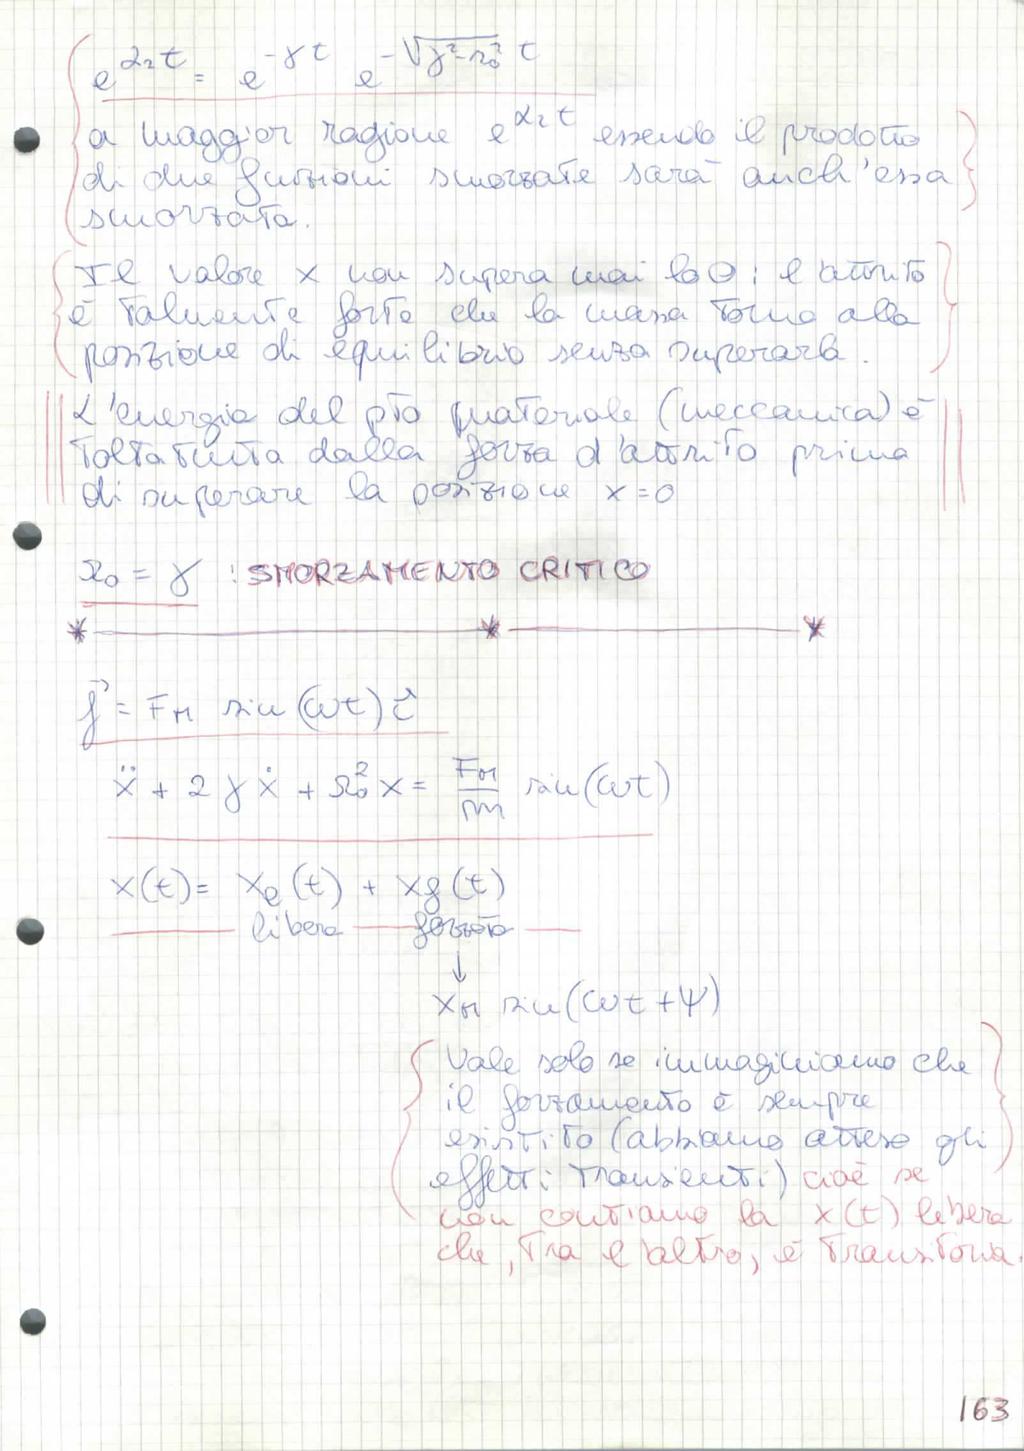 e^{α₂t} = e^{-γt} e^{-√(γ²-Ω₀²) t}
a maggior ragione e^{α₂t} essendo il prodotto
di due funzioni smorzate sarà anch'essa
smorzata.
Il valore x non supera mai lo 0; l'attrito
è talmente forte che la massa torna alla
posizione di equilibrio senza superarla.
L'energia del pto materiale (meccanica) è
tolta tutta dalla forza d'attrito prima
di superare la posizione x=0
Ω₀ = γ : SMORZAMENTO CRITICO
f⃗ = F_M sin(ωt) i⃗
ẍ + 2γẋ + Ω₀²x = F_M/m sin(ωt)
x(t) = x_l(t) + x_f(t)
libera forzata
↓
x_M sin(ωt+ψ)
Vale solo se immaginiamo che
il forzamento è sempre
esistito (abbiamo atteso gli
effetti transienti) cioè se
non contiamo la x(t) libera
che, tra l'altro, è transitoria.
163